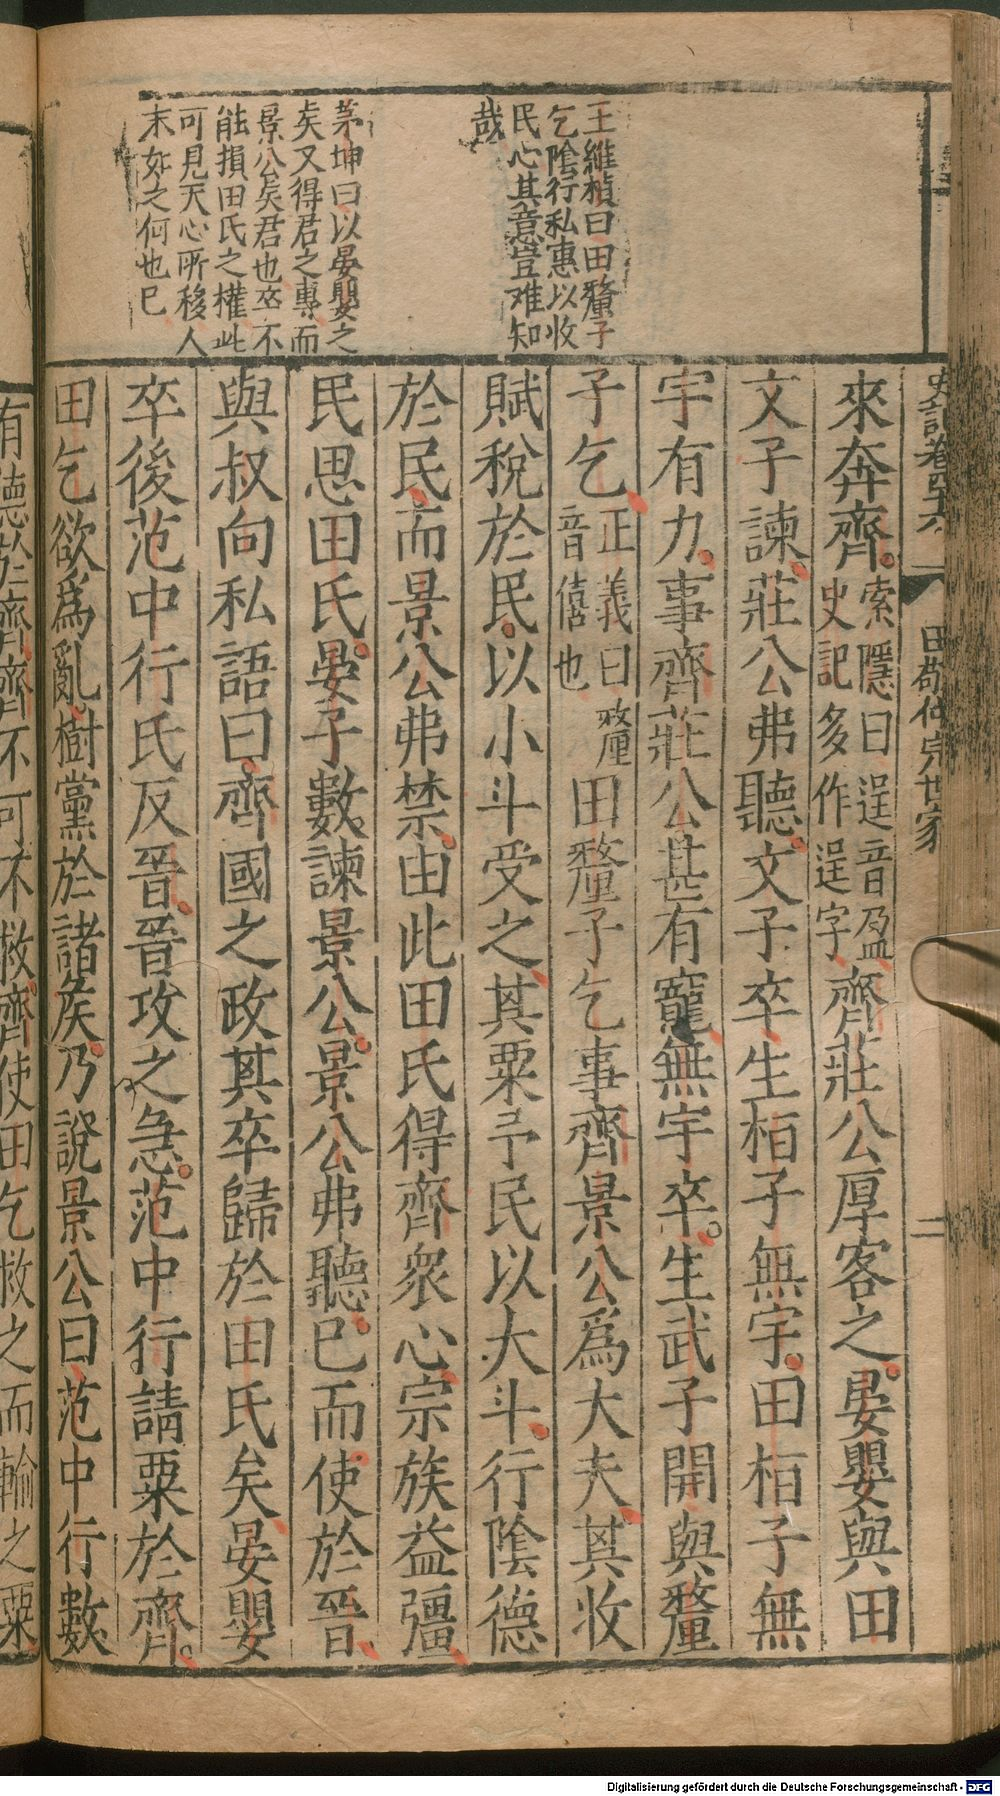 史記卷四十六
田敬仲完世家
二
王維楨曰田釐子
乞陰行私惠以收
民心其意豈难知
哉
茅坤曰以晏嬰之
矣又得君之專而
景公矣君也卒不
能損田氏之權此
可見天心所移人
末如之何也已
來奔齊索隱曰逞音盈史記多作逞字齊莊公厚客之晏嬰與田
文子諫莊公弗聽文子卒生栢子無宇田栢子無
宇有力事齊莊公甚有寵無宇卒生武子開與釐
子乞正義曰釐音僖也田釐子乞事齊景公爲大夫其收
賦稅於民以小斗受之其粟予民以大斗行陰德
於民而景公弗禁由此田氏得齊衆心宗族益彊
民思田氏晏子數諫景公景公弗聽已而使於晉
與叔向私語曰齊國之政其卒歸於田氏矣晏嬰
卒後范中行氏反晉晉攻之急范中行請粟於齊
田乞欲爲亂樹黨於諸侯乃說景公曰范中行數
有德於齊齊不可不救齊使田乞救之而輸之粟
Digitalisierung gefördert durch die Deutsche Forschungsgemeinschaft - DFG